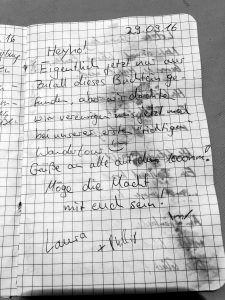 29.09.16
Heyho!
Eigentlich jetzt nur aus
Zufall dieses Büchlein ge-
funden, aber wir dachten
wir verewigen uns jetzt mal
bei unserer ersten richtigen
Wandertour
Grüße an alle auf dem
Möge die Macht
mit euch sein!
Laura
+
16